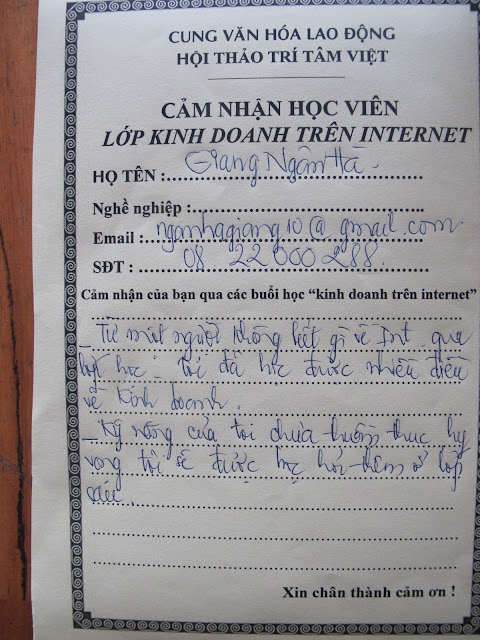 CUNG VĂN HÓA LAO ĐỘNG
HỘI THẢO TRÍ TÂM VIỆT
CẢM NHẬN HỌC VIÊN
LỚP KINH DOANH TRÊN INTERNET
HỌ TÊN : Giang Ngân Hà
Nghề nghiệp :
Email : nganhagiang10@gmail.com
SĐT : 08 22 600 288
Cảm nhận của bạn qua các buổi học “kinh doanh trên internet”
_ Từ một người không biết gì về Int. qua
lớp học _ tôi đã học được nhiều điều
về kinh doanh.
_ Kỹ năng của tôi chưa thuần thục hy
vọng tôi sẽ được học hỏi thêm ở lớp
sau.
Xin chân thành cảm ơn !